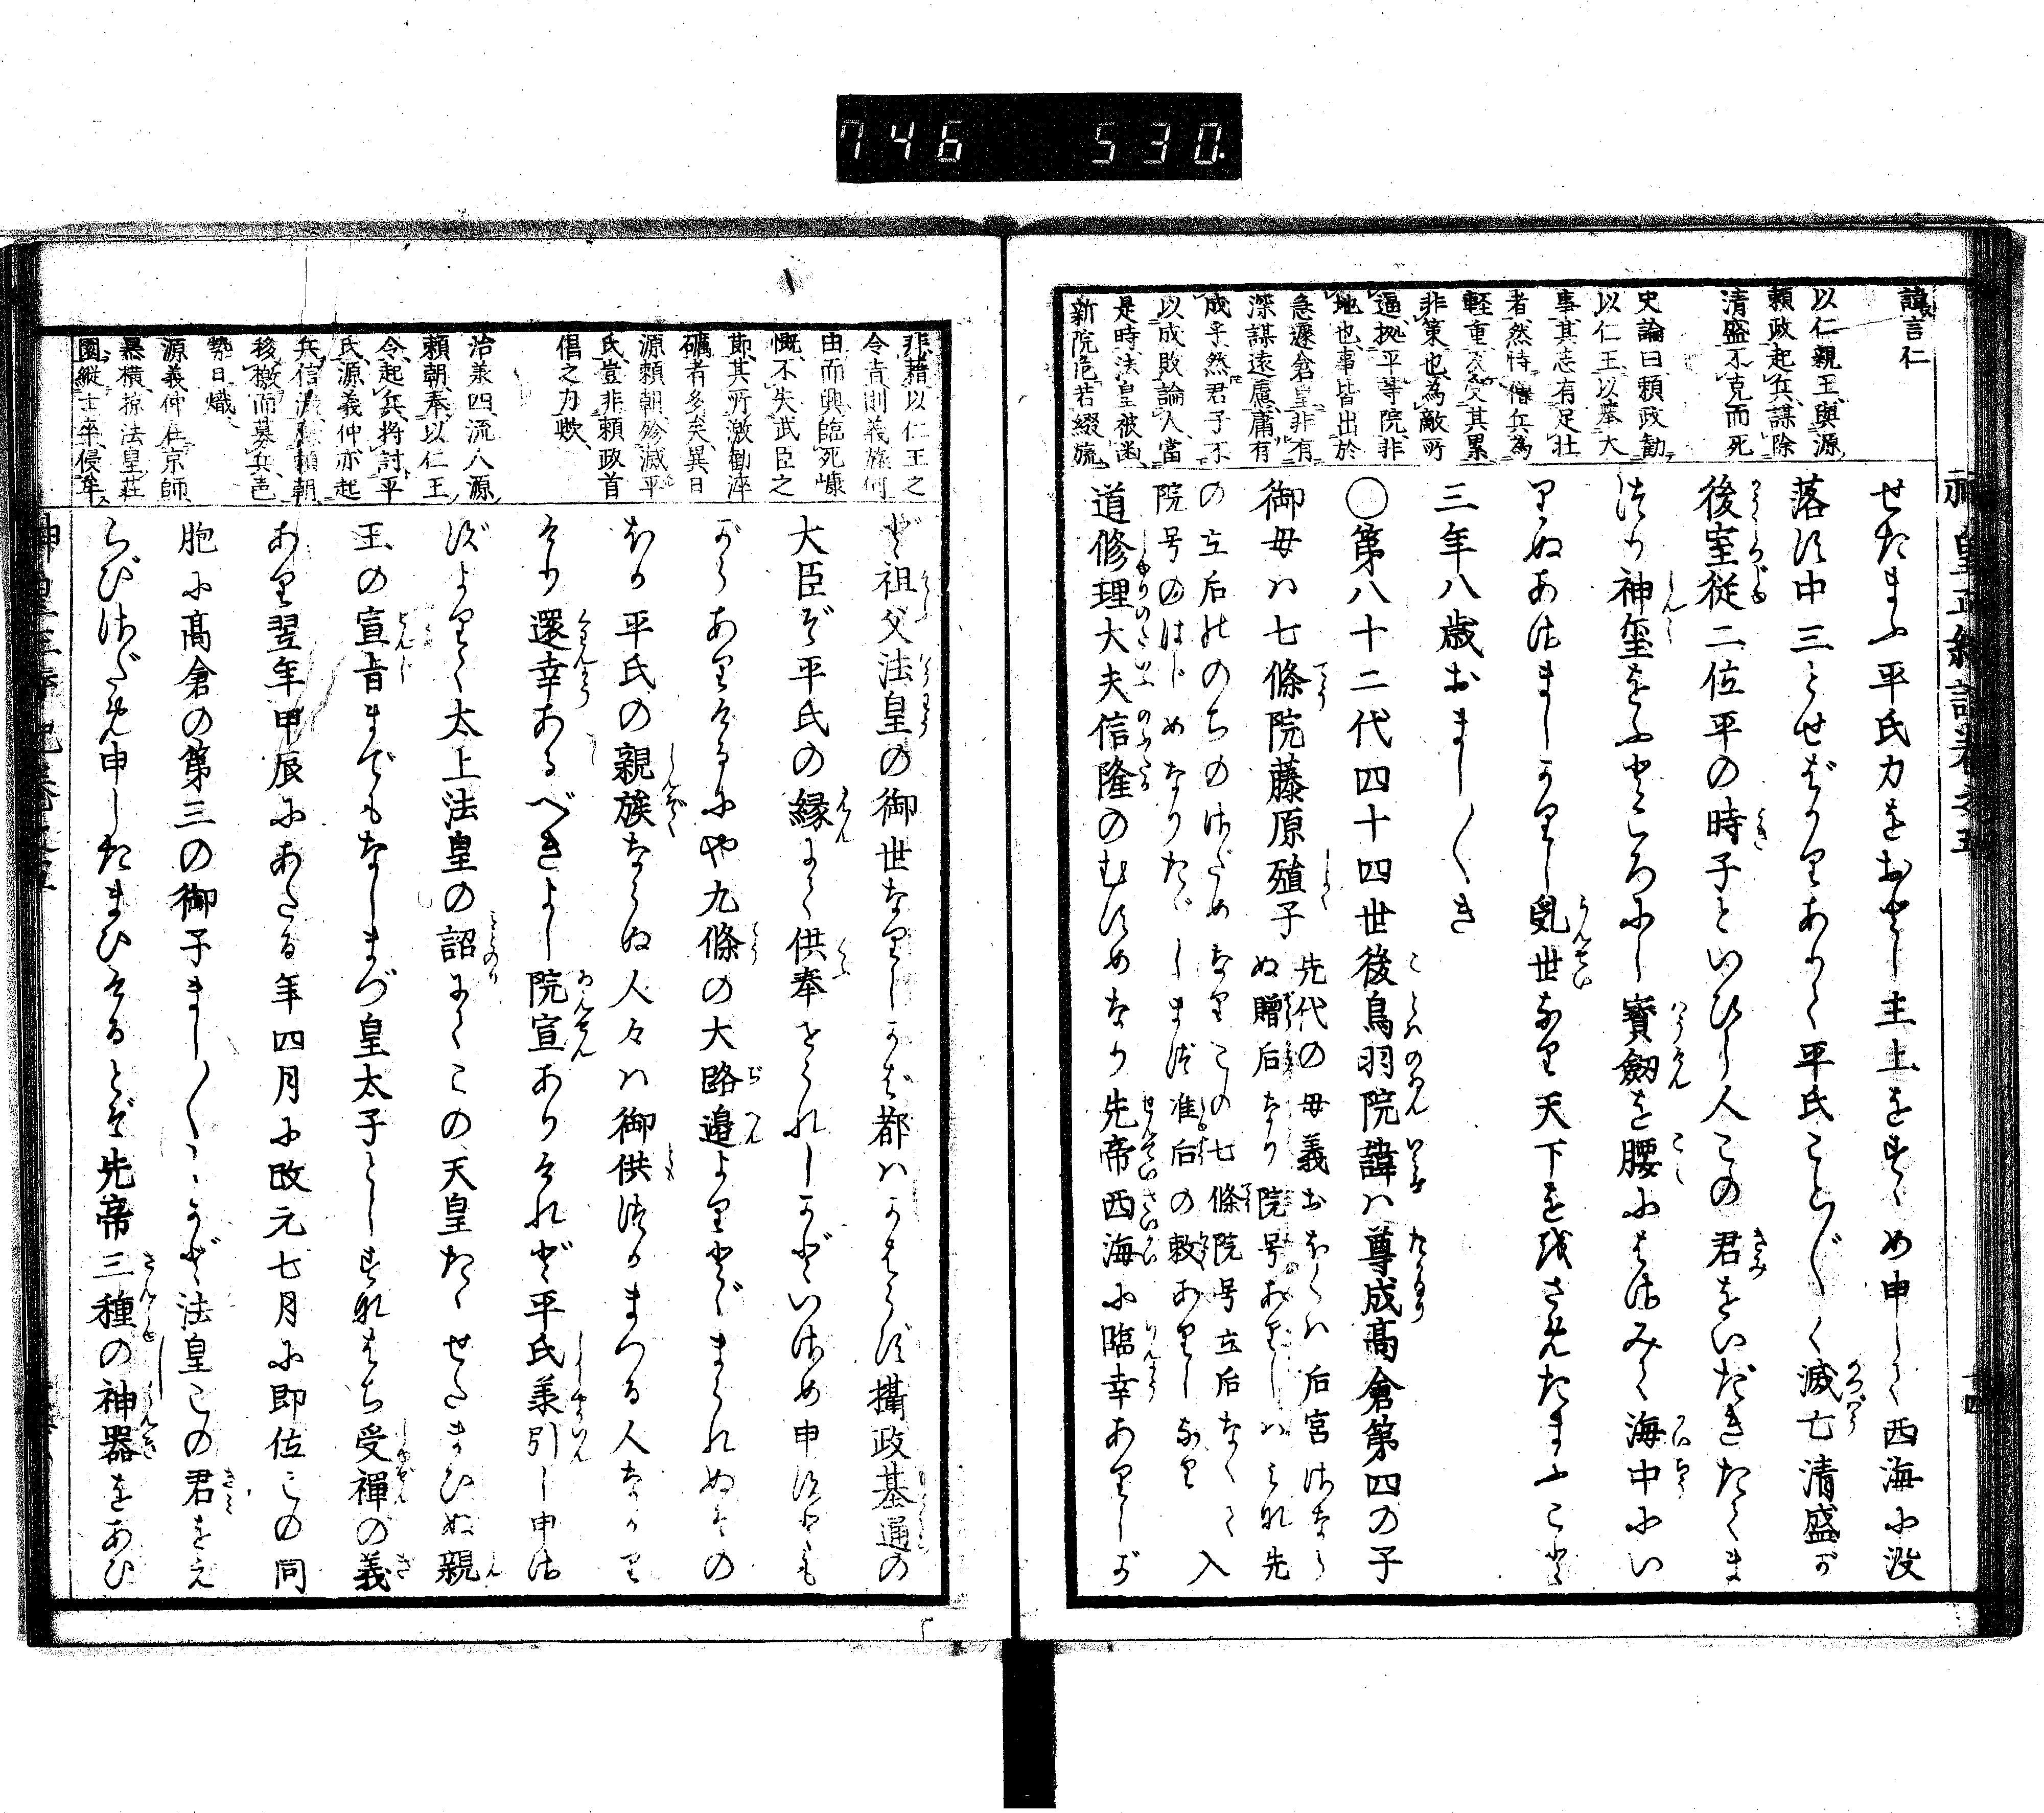 746 530.
諱言仁
以仁親王與源
頼政起兵謀除
清盛不克而死
史論曰頼政勸
以仁王以舉大
事其志有足壮
者然恃僧兵為
軽重反受其累
非策也為敵所
逼拠平等院非
地也事皆出於
急遽倉皇非有
深謀遠慮庸有
成乎然君子不
以成敗論人當
是時法皇被幽
新院危若綴旒
神皇正統記巻之五
十四
せたまふ平氏力をおとし主上をすゝめ申して西海に没
落す中三とせばかりありて平氏ことごとく滅亡清盛が
後室従二位平の時子といひし人この君をいだきたてま
つり神璽をふところにし寶劔を腰にはさみて海中にい
りぬあさましかりし乱世なり天下を残させたまふこと
三年八歳おまし〳〵き
〇第八十二代四十四世後鳥羽院諱ハ尊成高倉第四の子
御母ハ七條院藤原殖子
先代の母義おほくハ后宮なら
ぬ贈后なり院号ありしハみな先
の立后ののちのさだめなりこの七條院号立后なくて入
院号のはじめなりたゞしまづ准后の敕ありしなり
道修理大夫信隆のむすめなり先帝西海に臨幸ありしが
非藉以仁王之
令旨則義旅何
由而興臨死慷
慨不失武臣之
節其所激勸淬
礪者多矣異日
源頼朝殄滅平
氏豈非頼政首
倡之力歟
治承四流人源
頼朝奉以仁王
令起兵将討平
氏源義仲亦起
兵信濃頼朝
移檄而募兵邑
勢日熾
源義仲在京師
暴横掠法皇荘
園縦士卒侵牟
ど祖父法皇の御世なりしかば都ハかはらず攝政基通の
大臣ぞ平氏の縁にて供奉せられしかどいさめ申すとも
がらありけるにや九條の大路邉よりとゞまられぬその
ほか平氏の親族ならぬ人々ハ御供つかまつる人なかり
けり還幸あるべきよし院宣ありけれど平氏承引し申さ
ずよりて太上法皇の詔にてこの天皇たゝせたまひぬ親
王の宣旨までもなしまづ皇太子としすなはち受禪の義
あり翌年甲辰にあたる年四月に改元七月に即位この同
胞に高倉の第三の御子まし〳〵ゝかど法皇この君をえ
らびさだめ申したまひけるとぞ先帝三種の神器をあひ